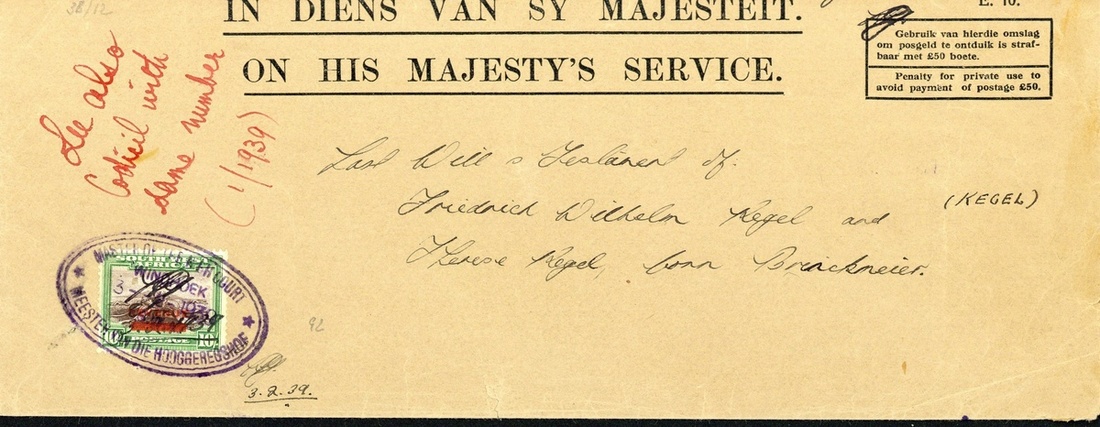 38/12
IN DIENS VAN SY MAJESTEIT.
E. 10.
ON HIS MAJESTY'S SERVICE.
Gebruik van hierdie omslag
om posgeld te ontduik is straf-
baar met £50 boete.
Penalty for private use to
avoid payment of postage £50.
See also
Codicil with
same number
(1/1939)
Last Will & Testament of
Friedrich Wilhelm Kegel and
(KEGEL)
Therese Kegel, born Brinckmeier.
MASTER OF THE COURT
SOUTH WEST
AFRICA
WINDHOEK
POSTAGE 10/-
MEESTER VAN DIE HOOGGEREGSHOF
92
3.2.39.